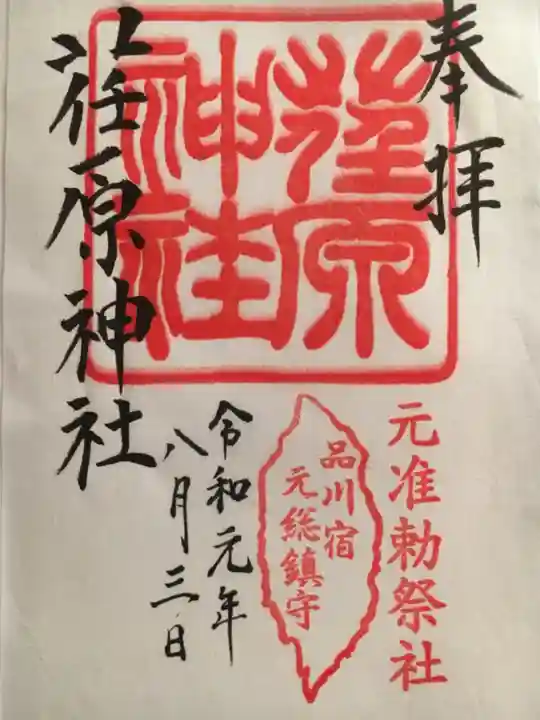 奉拝
荏原
神社
元准勅祭社
品川宿
元総鎮守
令和元年
八月三日
荏原神社